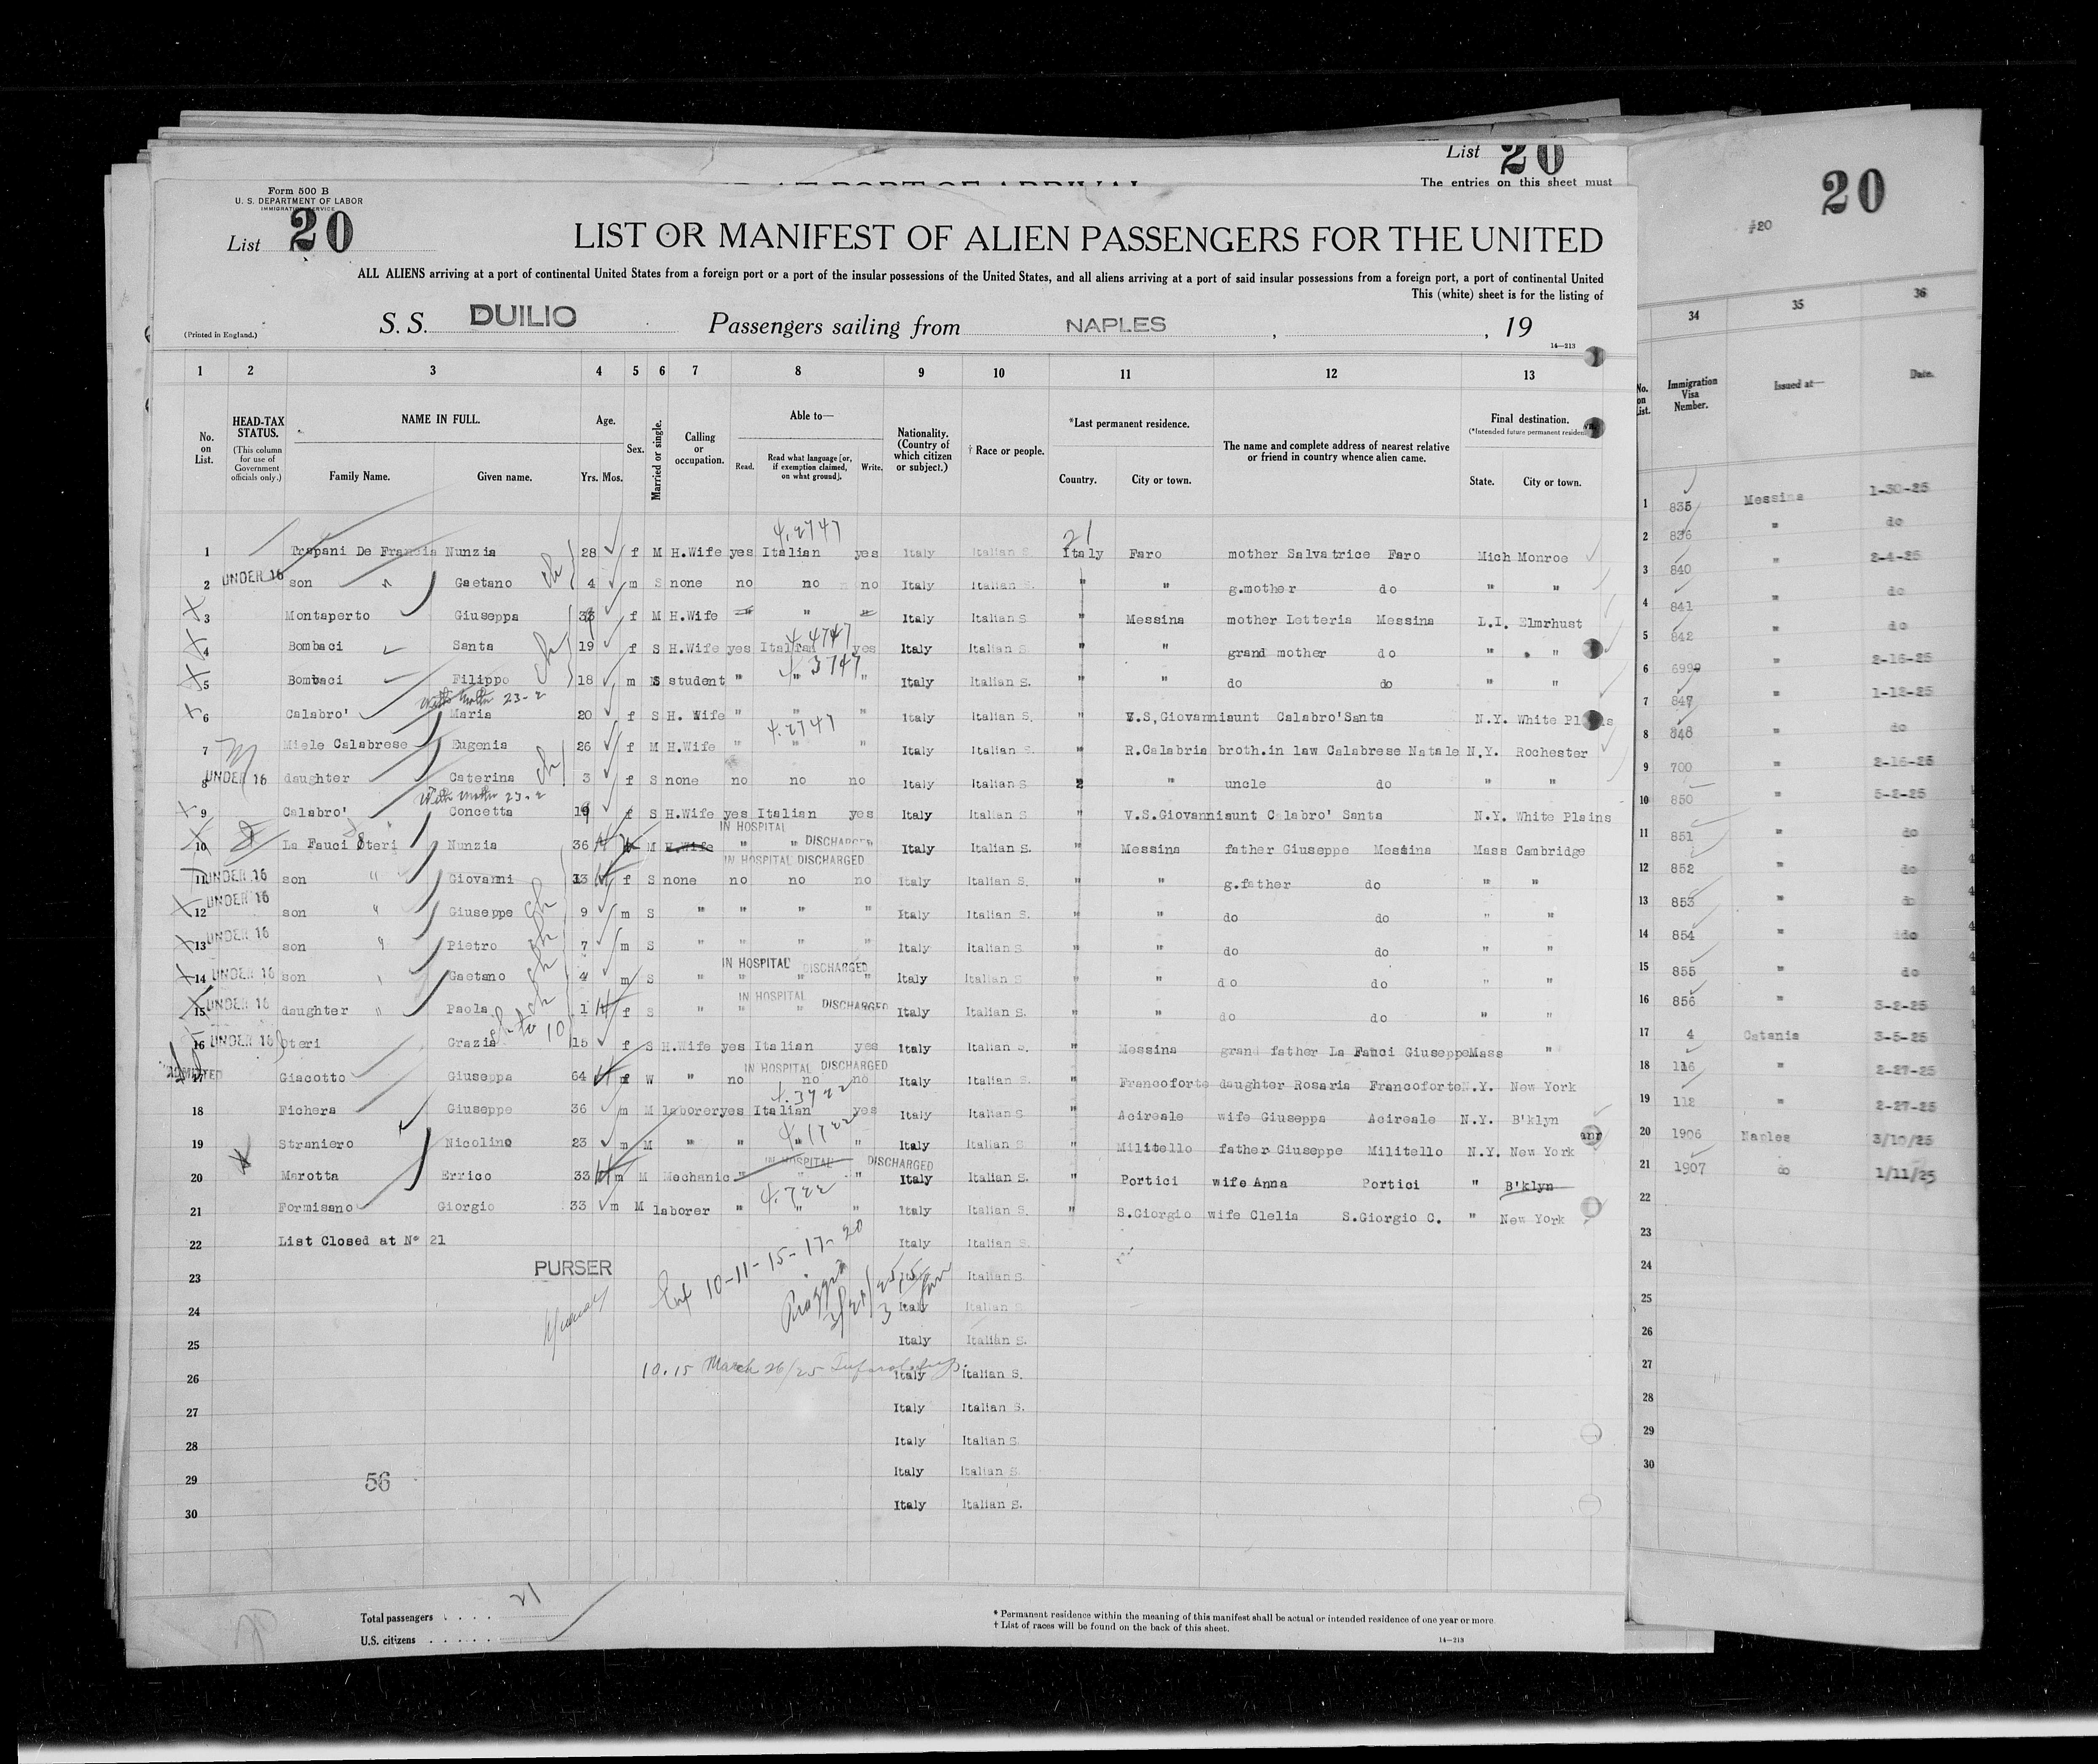 List 20
The entries on this sheet must
20
#20
Form 500 B
U. S. DEPARTMENT OF LABOR
IMMIGRATION SERVICE
List 20
LIST OR MANIFEST OF ALIEN PASSENGERS FOR THE UNITED
ALL ALIENS arriving at a port of continental United States from a foreign port or a port of the insular possessions of the United States, and all aliens arriving at a port of said insular possessions from a foreign port, a port of continental United
This (white) sheet is for the listing of
(Printed in England.)
S. S. DUILIO Passengers sailing from NAPLES , , 19
14—213
1 2 3 4 5 6 7 8 9 10 11 12 13
No. on List.
HEAD-TAX STATUS.
(This column for use of Government officials only.)
NAME IN FULL.
Family Name. Given name.
Age.
Yrs. Mos.
Sex.
Married or single.
Calling or occupation.
Able to—
Read. Read what language [or, if exemption claimed, on what ground]. Write.
Nationality. (Country of which citizen or subject.)
† Race or people.
*Last permanent residence.
Country. City or town.
The name and complete address of nearest relative or friend in country whence alien came.
Final destination.
(*Intended future permanent
State. City or town.
4.2747 21
1 Trapani De Francia Nunzia 28 f M H.Wife yes Italian yes Italy Italian S. Italy Faro mother Salvatrice Faro Mich Monroe
2 UNDER 16 son " Gaetano 4 m S none no no no Italy Italian S. " " g.mother do " "
3 Montaperto Giuseppa f M H.Wife " " " Italy Italian S " Messina mother Letteria Messina L.I. Elmrhust
4.4747
4 Bombaci Santa 19 f S H.Wife yes Italian yes Italy Italian S. " " grand mother do " "
4 3747
5 Bombaci Filippo 18 m S student " " " Italy Italian S. " " do do " "
With mother 23-2
6 Calabro' Maria 20 f S H. Wife " " " Italy Italian S. " V.S.Giovanni aunt Calabro'Santa N.Y. White Plains
4.2747
7 Miele Calabrese Eugenia 26 f M H.Wife " " " Italy Italian S. " R.Calabria broth.in law Calabrese Natale N.Y. Rochester
8 UNDER 16 daughter Caterina 3 f S none no no no Italy Italian S " uncle do " "
With mother 23-2
9 Calabro' Concetta 19 f S H.Wife yes Italian yes Italy Italian S. " V.S.Giovanni aunt Calabro' Santa N.Y. White Plains
IN HOSPITAL DISCHARGED
10 La Fauci Oteri Nunzia 36 M H.Wife " " Italy Italian S. " Messina father Giuseppe Messina Mass Cambridge
IN HOSPITAL DISCHARGED
11 UNDER 16 son " Giovanni 13 f S none no no no Italy Italian S. " " g.father do " "
12 UNDER 16 son " Giuseppe 9 m S " " " " Italy Italian S. " " do do " "
13 UNDER 16 son " Pietro 7 m S " " " " Italy Italian S. " " do do " "
IN HOSPITAL DISCHARGED
14 UNDER 16 son " Gaetano 4 m S " " " " Italy Italian S " " do do " "
IN HOSPITAL DISCHARGED
15 UNDER 16 daughter " Paola 1 f S " " " Italy Italian S. " " do do " "
16 UNDER 16 Oteri Grazia 15 f S H.Wife yes Italian yes Italy Italian S. " Messina grand father La Fauci Giuseppe Mass "
IN HOSPITAL DISCHARGED
17 ADMITTED Giacotto Giuseppa 64 f W " no no no Italy Italian S. " Francoforte daughter Rosaria Francoforte N.Y. New York
4.3722
18 Fichera Giuseppe 36 m M laborer yes Italian yes Italy Italian S " Acireale wife Giuseppa Acireale N.Y. B'klyn
4.1722
19 Straniero Nicolino 23 m M " " " Italy Italian S. " Militello father Giuseppe Militello N.Y. New York
IN HOSPITAL DISCHARGED
20 Marotta Errico 33 m M Mechanic " " " Italy Italian S. " Portici wife Anna Portici " B'klyn
4.722
21 Formisano Giorgio 33 m M laborer " " " Italy Italian S. " S.Giorgio wife Clelia S.Giorgio C. " New York
22 List Closed at N° 21 Italy Italian S.
PURSER
23 10-11-15-17-20 Italian S.
24 3/21/25 Italy Italian S.
25 Italy Italian S.
10.15 March 26/25
26 Italy Italian S.
27 Italy Italian S.
28 Italy Italian S.
29 56 Italy Italian S
30 Italy Italian S.
Total passengers . . . . 21
U.S. citizens . . . . . .
* Permanent residence within the meaning of this manifest shall be actual or intended residence of one year or more.
† List of races will be found on the back of this sheet.
14—213
34 35 36
No. on List. Immigration Visa Number. Issued at— Date.
1 835 Messina 1-30-25
2 836 " do
3 840 " 2-4-25
4 841 " do
5 842 " do
6 6999 " 2-16-25
7 847 " 1-13-25
8 848 " do
9 700 " 2-16-25
10 850 " 5-2-25
11 851 " do
12 852 " do
13 853 " do
14 854 " do
15 855 " do
16 856 " 3-2-25
17 4 Catania 3-5-25
18 116 " 2-27-25
19 112 " 2-27-25
20 1906 Naples 3/10/25
21 1907 do 1/11/25
22
23
24
25
26
27
28
29
30